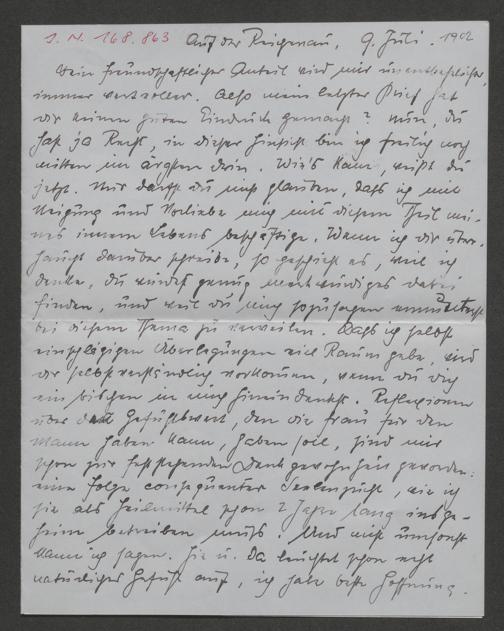 I. N. 168.863 Auf der Reichenau, 9. Juli. 1902
Dein freundschaftlicher Anteil wird mir unentbehrlicher,
immer wertvoller. Also mein letzter Brief hat
dir keinen guten Eindruck gemacht? Nun, du
hast ja Recht, in dieser Hinsicht bin ich freilich noch
mitten im ärgsten drin. Wie's kam, weißt du
jetzt. Nur darfst du nicht glauben, daß ich mit
Neigung und Vorliebe mich mit diesem Theil mei-
nes innern Lebens beschäftige. Wenn ich dir über-
haupt darüber schreibe, so geschieht es, weil ich
denke, du würdest genug merkwürdiges dabei
finden, und weil du mich sozusagen
bei diesem Thema zu verweilen. Daß ich selbst
einschlägigen Überlegungen viel Raum gebe, wird
dir selbstverständlich vorkommen, wenn du dich
ein bischen in mich hineindenkst. Reflexionen
über den Gefühlswert, den die Frau für den
Mann haben kann, haben soll, sind mir
schon zur feststehenden Denkgewohnheit geworden:
eine Folge consequenter Seelenzucht, wie ich
sie als Heilmittel schon 2 Jahre lang insge-
heim betreiben muß. Und nicht umsonst
kann ich sagen. Hie u. da leuchtet schon recht
natürliches Gefühl auf, ich habe beste Hoffnung.